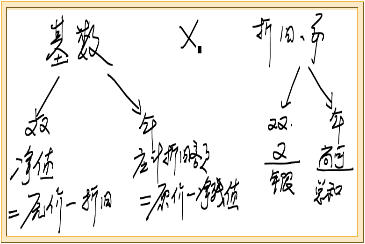 基数 × 折旧率
双 年 双 年
净值 应计折旧额 2/年限 尚可/总和
=原价-折旧 =原价-净残值